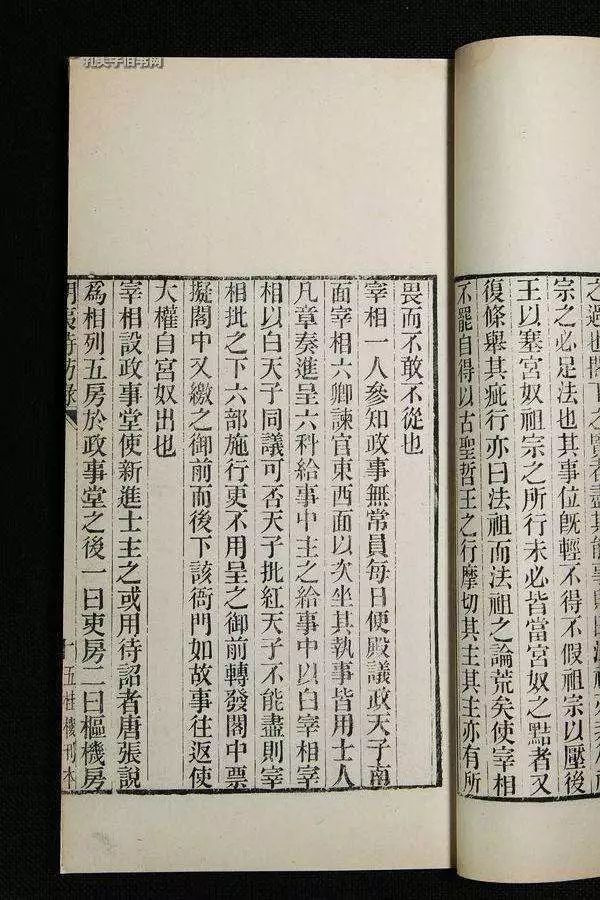 孔夫子旧书网
宗之必足法也其事位旣輕不得不假祖宗以壓後
王以塞宮奴祖宗之所行未必皆當宮奴之黠者又
復條舉其疵行亦曰法祖而法祖之論荒矣使宰相
不罷自得以古聖哲王之行摩切其主其主亦有所
畏而不敢不從也
宰相一人參知政事無常員每日便殿議政天子南
面宰相六卿諫官東西面以次坐其執事皆用士人
凡章奏進呈六科給事中主之給事中以白宰相宰
相以白天子同議可否天子批紅天子不能盡則宰
相批之下六部施行更不用呈之御前轉發閣中票
擬閣中又繳之御前而後下該衙門如故事往返使
大權自宮奴出也
宰相設政事堂使新進士主之或用待詔者唐張說
為相列五房於政事堂之後一曰吏房二曰樞機房
明夷待訪錄
十 五桂樓刊本